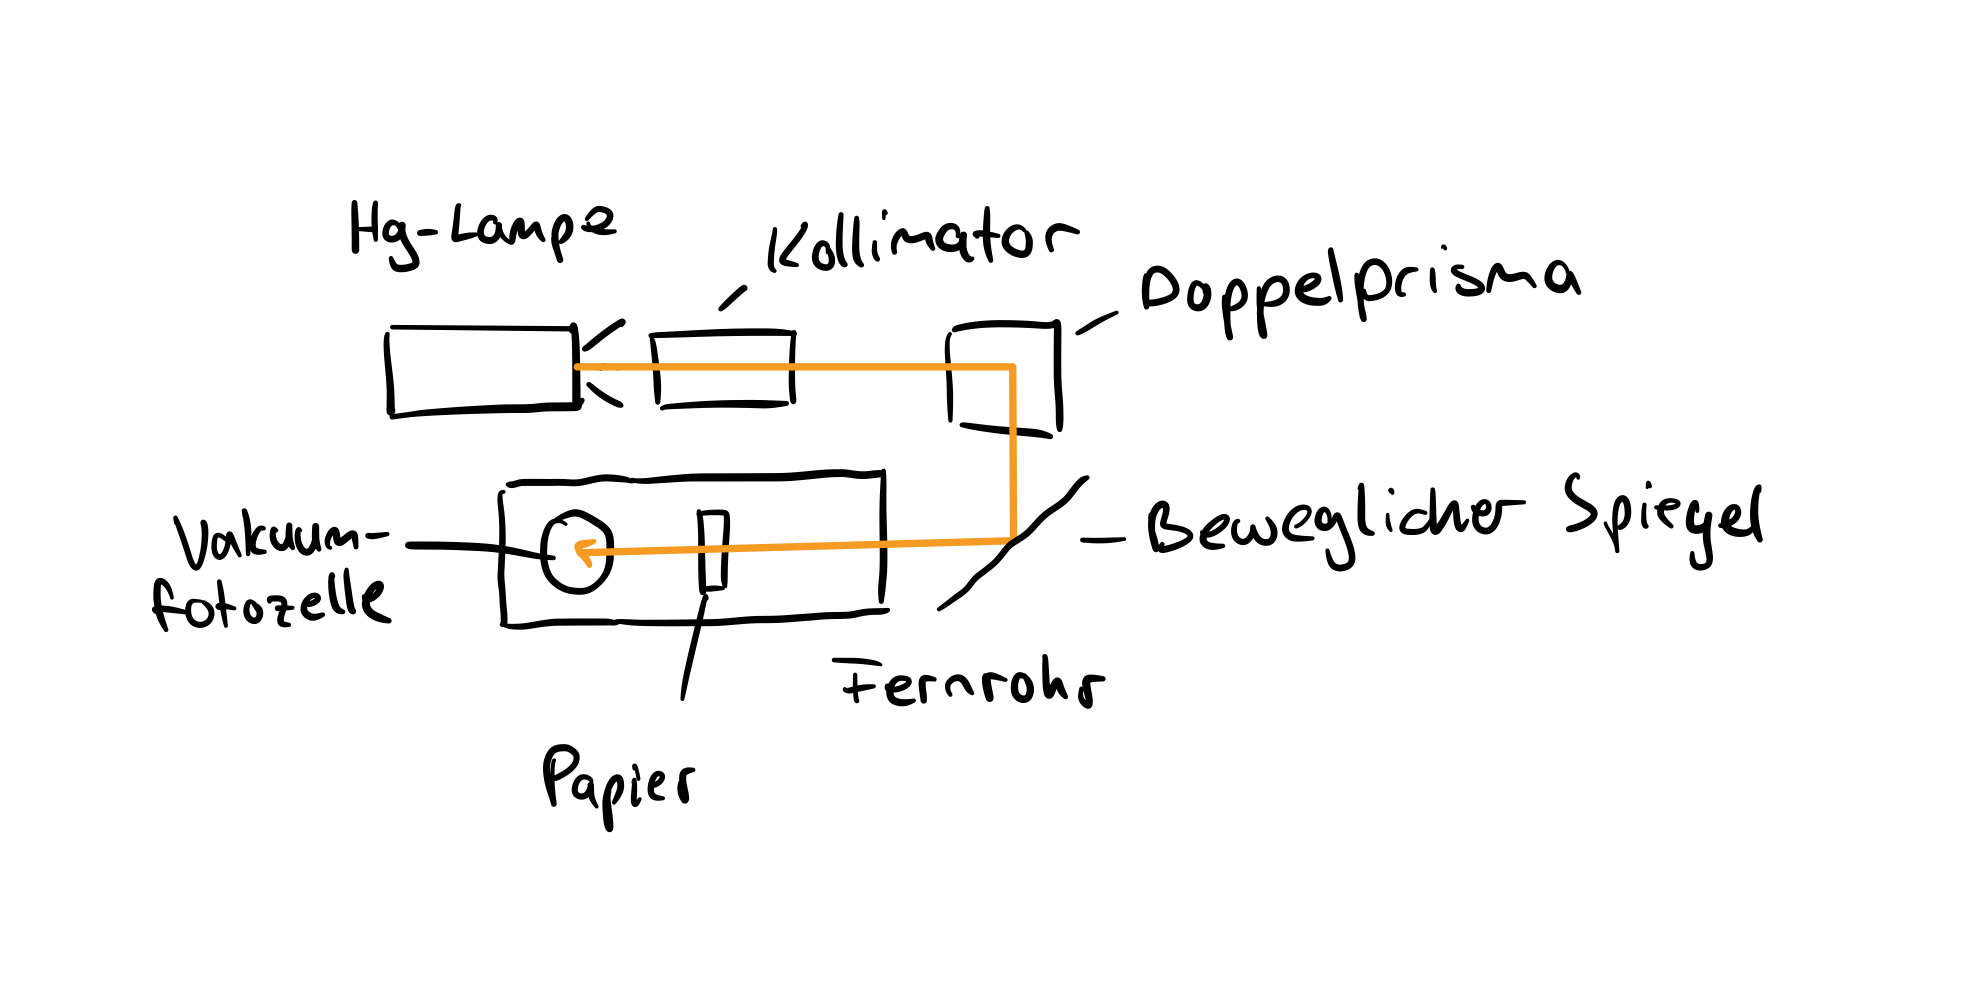 Hg-Lampe
Kollimator
Doppelprisma
Vakuum-
fotozelle
Beweglicher Spiegel
Fernrohr
Papier